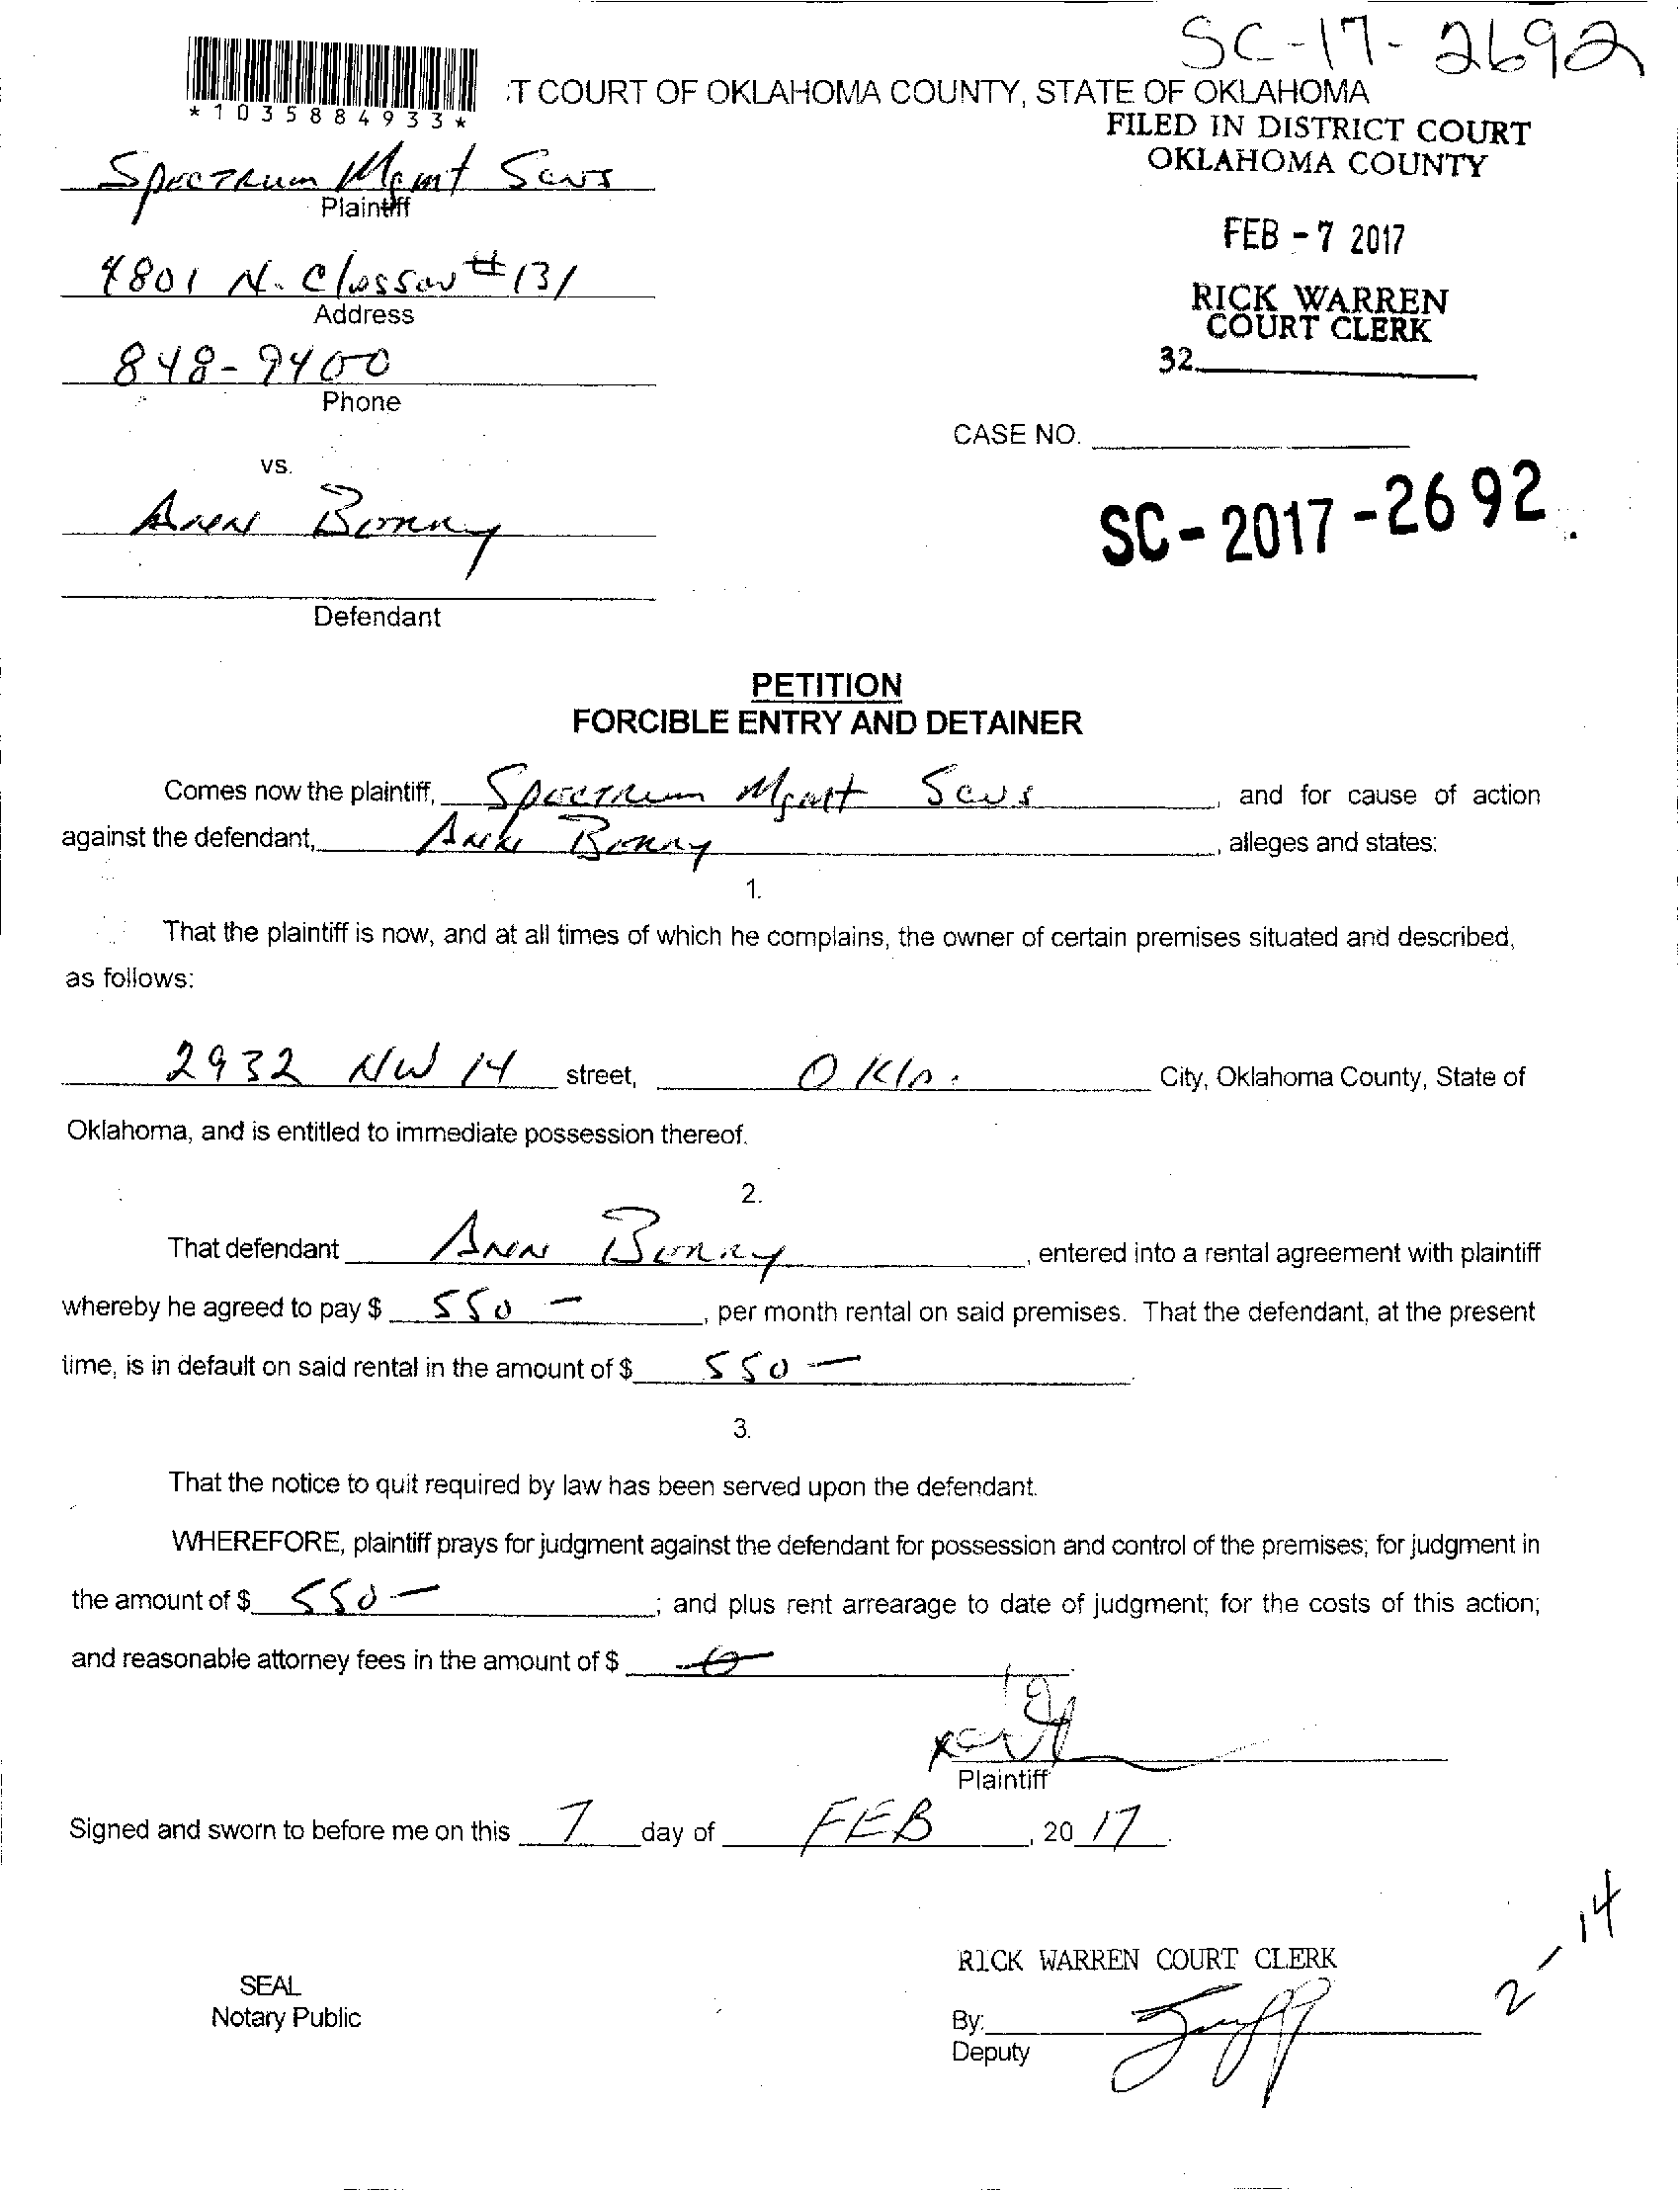 SC-17-2692
T COURT OF OKLAHOMA COUNTY, STATE OF OKLAHOMA
*1035884933*
FILED IN DISTRICT COURT
OKLAHOMA COUNTY
Spectrum Mgmt Scvs
Plaintiff
FEB - 7 2017
4801 N. Classen #131
Address
RICK WARREN
COURT CLERK
848-9400
32
Phone
CASE NO.
vs.
SC - 2017 - 2692
Defendant
PETITION
FORCIBLE ENTRY AND DETAINER
Comes now the plaintiff, Spectrum Mgmt Scvs, and for cause of action
against the defendant, , alleges and states:
1.
That the plaintiff is now, and at all times of which he complains, the owner of certain premises situated and described,
as follows:
2932 NW 14 street, Okla. City, Oklahoma County, State of
Oklahoma, and is entitled to immediate possession thereof.
2.
That defendant , entered into a rental agreement with plaintiff
whereby he agreed to pay $ 550 -, per month rental on said premises. That the defendant, at the present
time, is in default on said rental in the amount of $ 550 -.
3.
That the notice to quit required by law has been served upon the defendant.
WHEREFORE, plaintiff prays for judgment against the defendant for possession and control of the premises; for judgment in
the amount of $ 550 -; and plus rent arrearage to date of judgment; for the costs of this action;
and reasonable attorney fees in the amount of $ 0.
Plaintiff
Signed and sworn to before me on this 7 day of FEB, 2017.
2-14
RICK WARREN COURT CLERK
SEAL
Notary Public
By:
Deputy